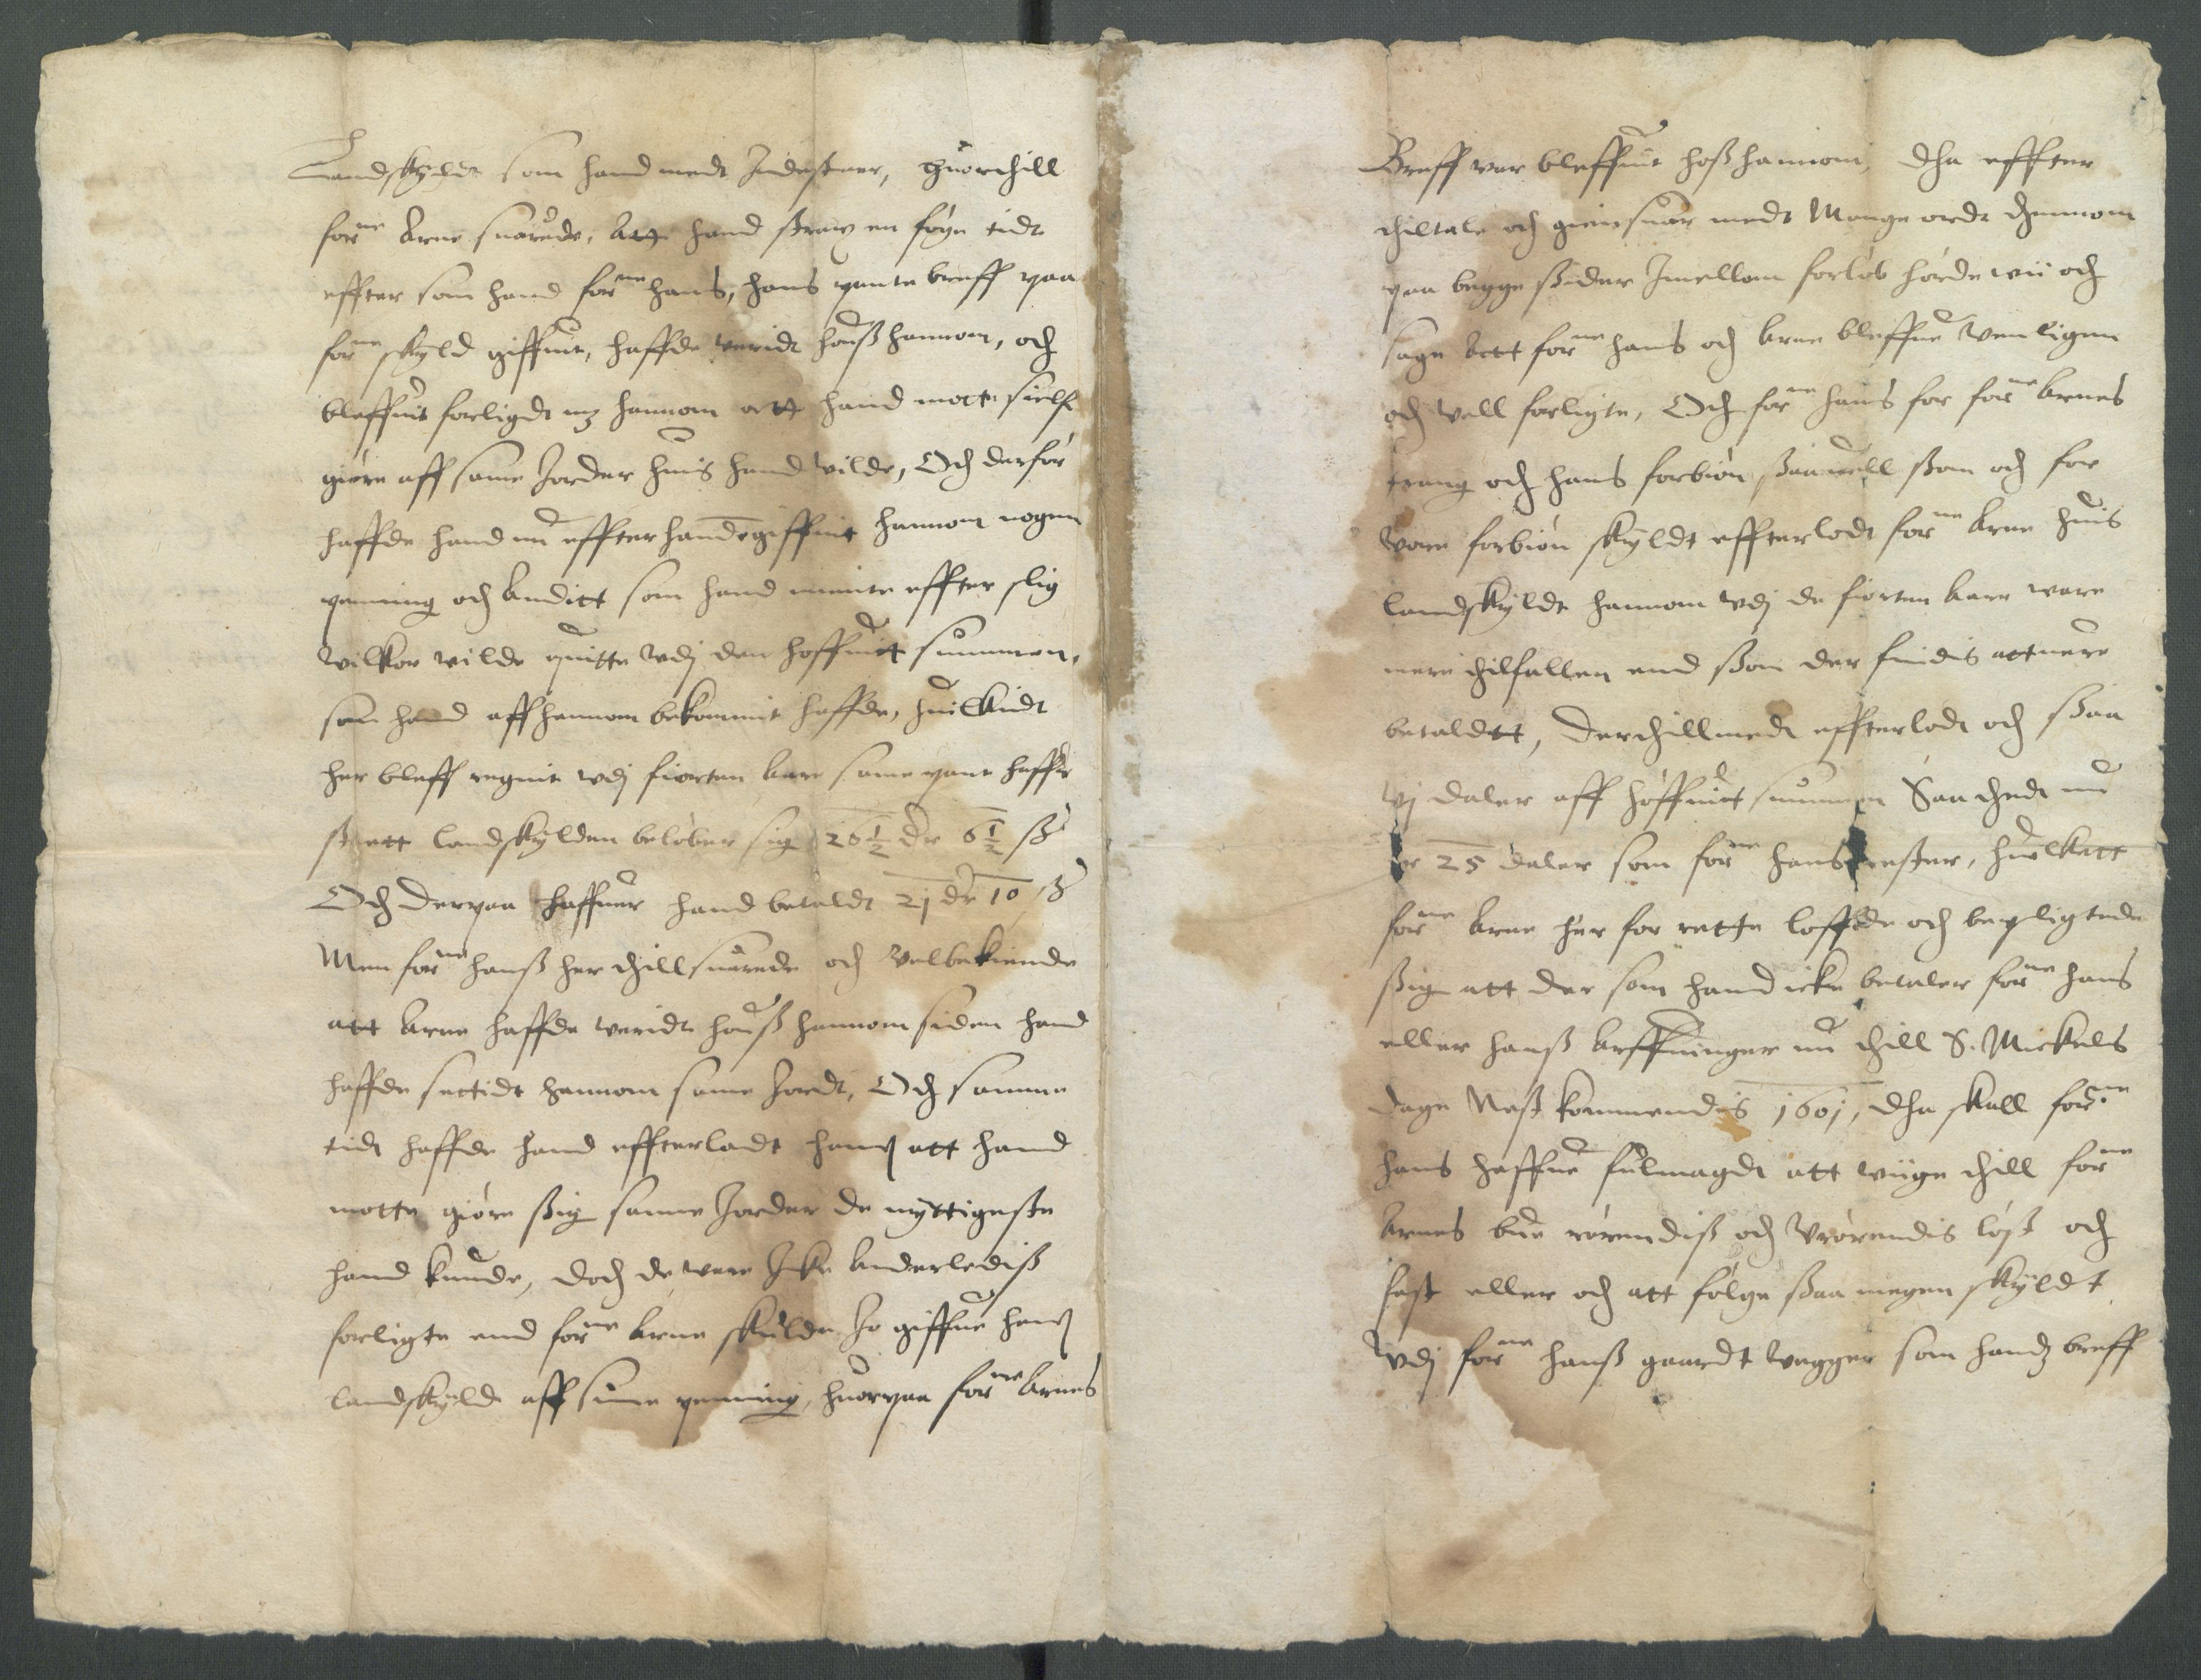 Landskyldt som hand medt Indestaar, huorthill
forne Arne suarede, Att hand straxe en føye tidt
effter som hand forne hans, hans pante breff paa
forne skyld giffuit, haffde veridt houß hannom, och
bleffuit forligdt mz hannom att hand motte sielff
giøre aff same Jorder huis hand vilde, Och derfor
haffde hand nu effterhandegiffuit hannom nogen
penning och Anditt som hand mente effter slig
vilkor vilde quitte vdj den hoffuit summen,
som hand aff hannom bekommit haffde, huilkidt
her bleff regnit vdj fiorten Aar same pant haffr
st att landskylden beløber sig 26½ dr 6½ ß
Och derpaa haffuer hand betaldt 21 dr 10 ß
Men forne hanß her thill suarede och velbekiende
att Arne haffde veridt houß hannom siden hand
haffde settidt hannom same Jordt, Och samme
tidt haffde hand effterladt hanom att hand
motte giøre ßig samme Jorder de nyttigeste
hand kunde, doch de were Icke Anderlediß
forligte end forne Arne skulde Jo giffue hanom
landskyld aff sinne penning, huorpaa forne Arnes
Breff var bleffuit hoß hannom, dha effter
thiltale och giensuar medt Mange ordt thennom
paa begge ßider Imellom forløb hørde wii och
sage Att forne hans och Arne bleffue venligen
och vell forligte, Och forne hans for forne Arnes
trang och hans forbøn ßaa vell ßom och for
vore forbøn skyldt effterlodt forne Arne huis
landskyldt hannom vdj de fiorten Aar ware
mere thilfallen end ßom der findis att uere
betaldtt, derthillmedt effterlodt och ßaa
vj daler aff hoffuit summen Saa thedt nu
er 25 daler som forne hans rester, huilkett
forne Arne her for rette loffde och bepligtede
ßig att der som hand icke betaler forne hans
eller hanß Arffuinger nu thill S. Mickels
dage Nest kommendis 1601, dha skall forne
hans haffue fulmagdt att wiige thill forne
Arnes bue rørendiß och vrørendis løß och
fast eller och att følge ßaa megen skyldt
vdj forne hanß gaardt Vegger som handz breff